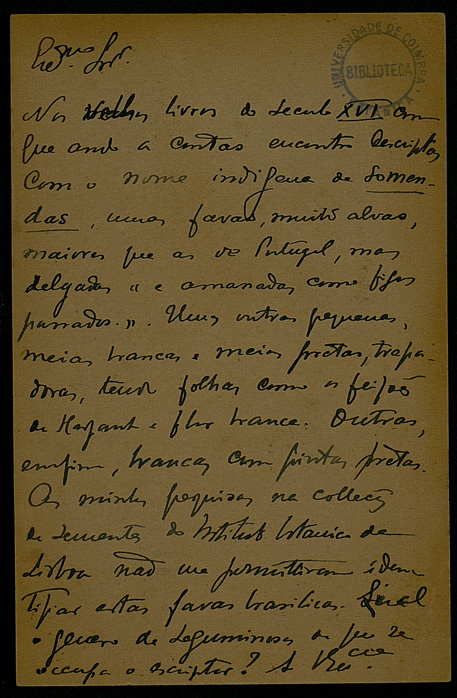 Exmo. Snr.
UNIVERSIDADE DE COIMBRA
BIBLIOTECA
BOTANICA
Nos livros do seculo XVI com
que ando a contas encontro descriptas
com o nome indigena de Comen-
das, umas favas, muito alvas,
maiores que as de Portugal, mas
delgadas "e amassadas como figos
passados.". Umas outras pequenas,
meias brancas e meias pretas, trepa-
doras, tendo folhas como os feijões
de e flor branca. Outras,
emfim, brancas com pintas pretas.
As minhas pesquisas na collecção
de sementes do Instituto botanico de
Lisboa não me permittiram iden-
tificar estas favas brasilicas. Qual
o genero de Leguminosas de que se
occupa o escriptor? A V. Excia.